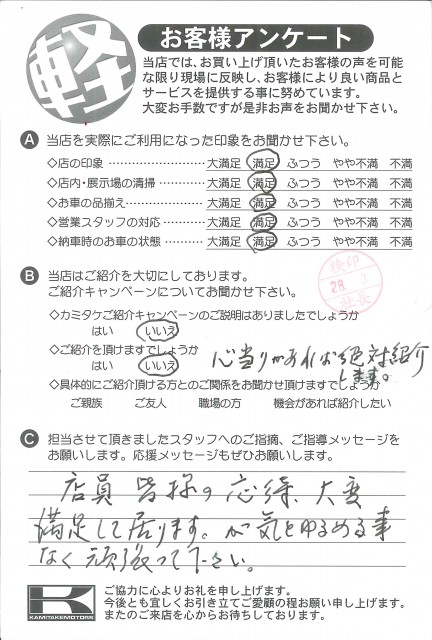 軽
お客様アンケート
当店では、お買い上げ頂いたお客様の声を可能
な限り現場に反映し、お客様により良い商品と
サービスを提供する事に努めています。
大変お手数ですが是非お声をお聞かせ下さい。
A 当店を実際にご利用になった印象をお聞かせ下さい。
◇店の印象 ……………………… 大満足 満足 ふつう やや不満 不満
◇店内・展示場の清掃 ………… 大満足 満足 ふつう やや不満 不満
◇お車の品揃え ………………… 大満足 満足 ふつう やや不満 不満
◇営業スタッフの対応 ………… 大満足 満足 ふつう やや不満 不満
◇納車時のお車の状態 ………… 大満足 満足 ふつう やや不満 不満
B 当店はご紹介を大切にしております。
ご紹介キャンペーンについてお聞かせ下さい。
検印
28.
社長
◇カミタケご紹介キャンペーンのご説明はありましたでしょうか
はい いいえ
◇ご紹介を頂けますでしょうか
はい いいえ
心当りがあれば絶対紹介
します。
◇具体的にご紹介頂ける方とのご関係をお聞かせ頂けますでしょうか
ご親族 ご友人 職場の方 機会があれば紹介したい
C 担当させて頂きましたスタッフへのご指摘、ご指導メッセージを
お願いします。応援メッセージもぜひお願いします。
店員皆様の応待、大変
満足して居ります。が気をゆるめる事
なく頑張って下さい。
K
KAMITAKEMOTORS
ご協力に心よりお礼を申し上げます。
今後とも宜しくお引き立てご愛顧の程お願い申し上げます。
またのご来店を心からお待ちしております。